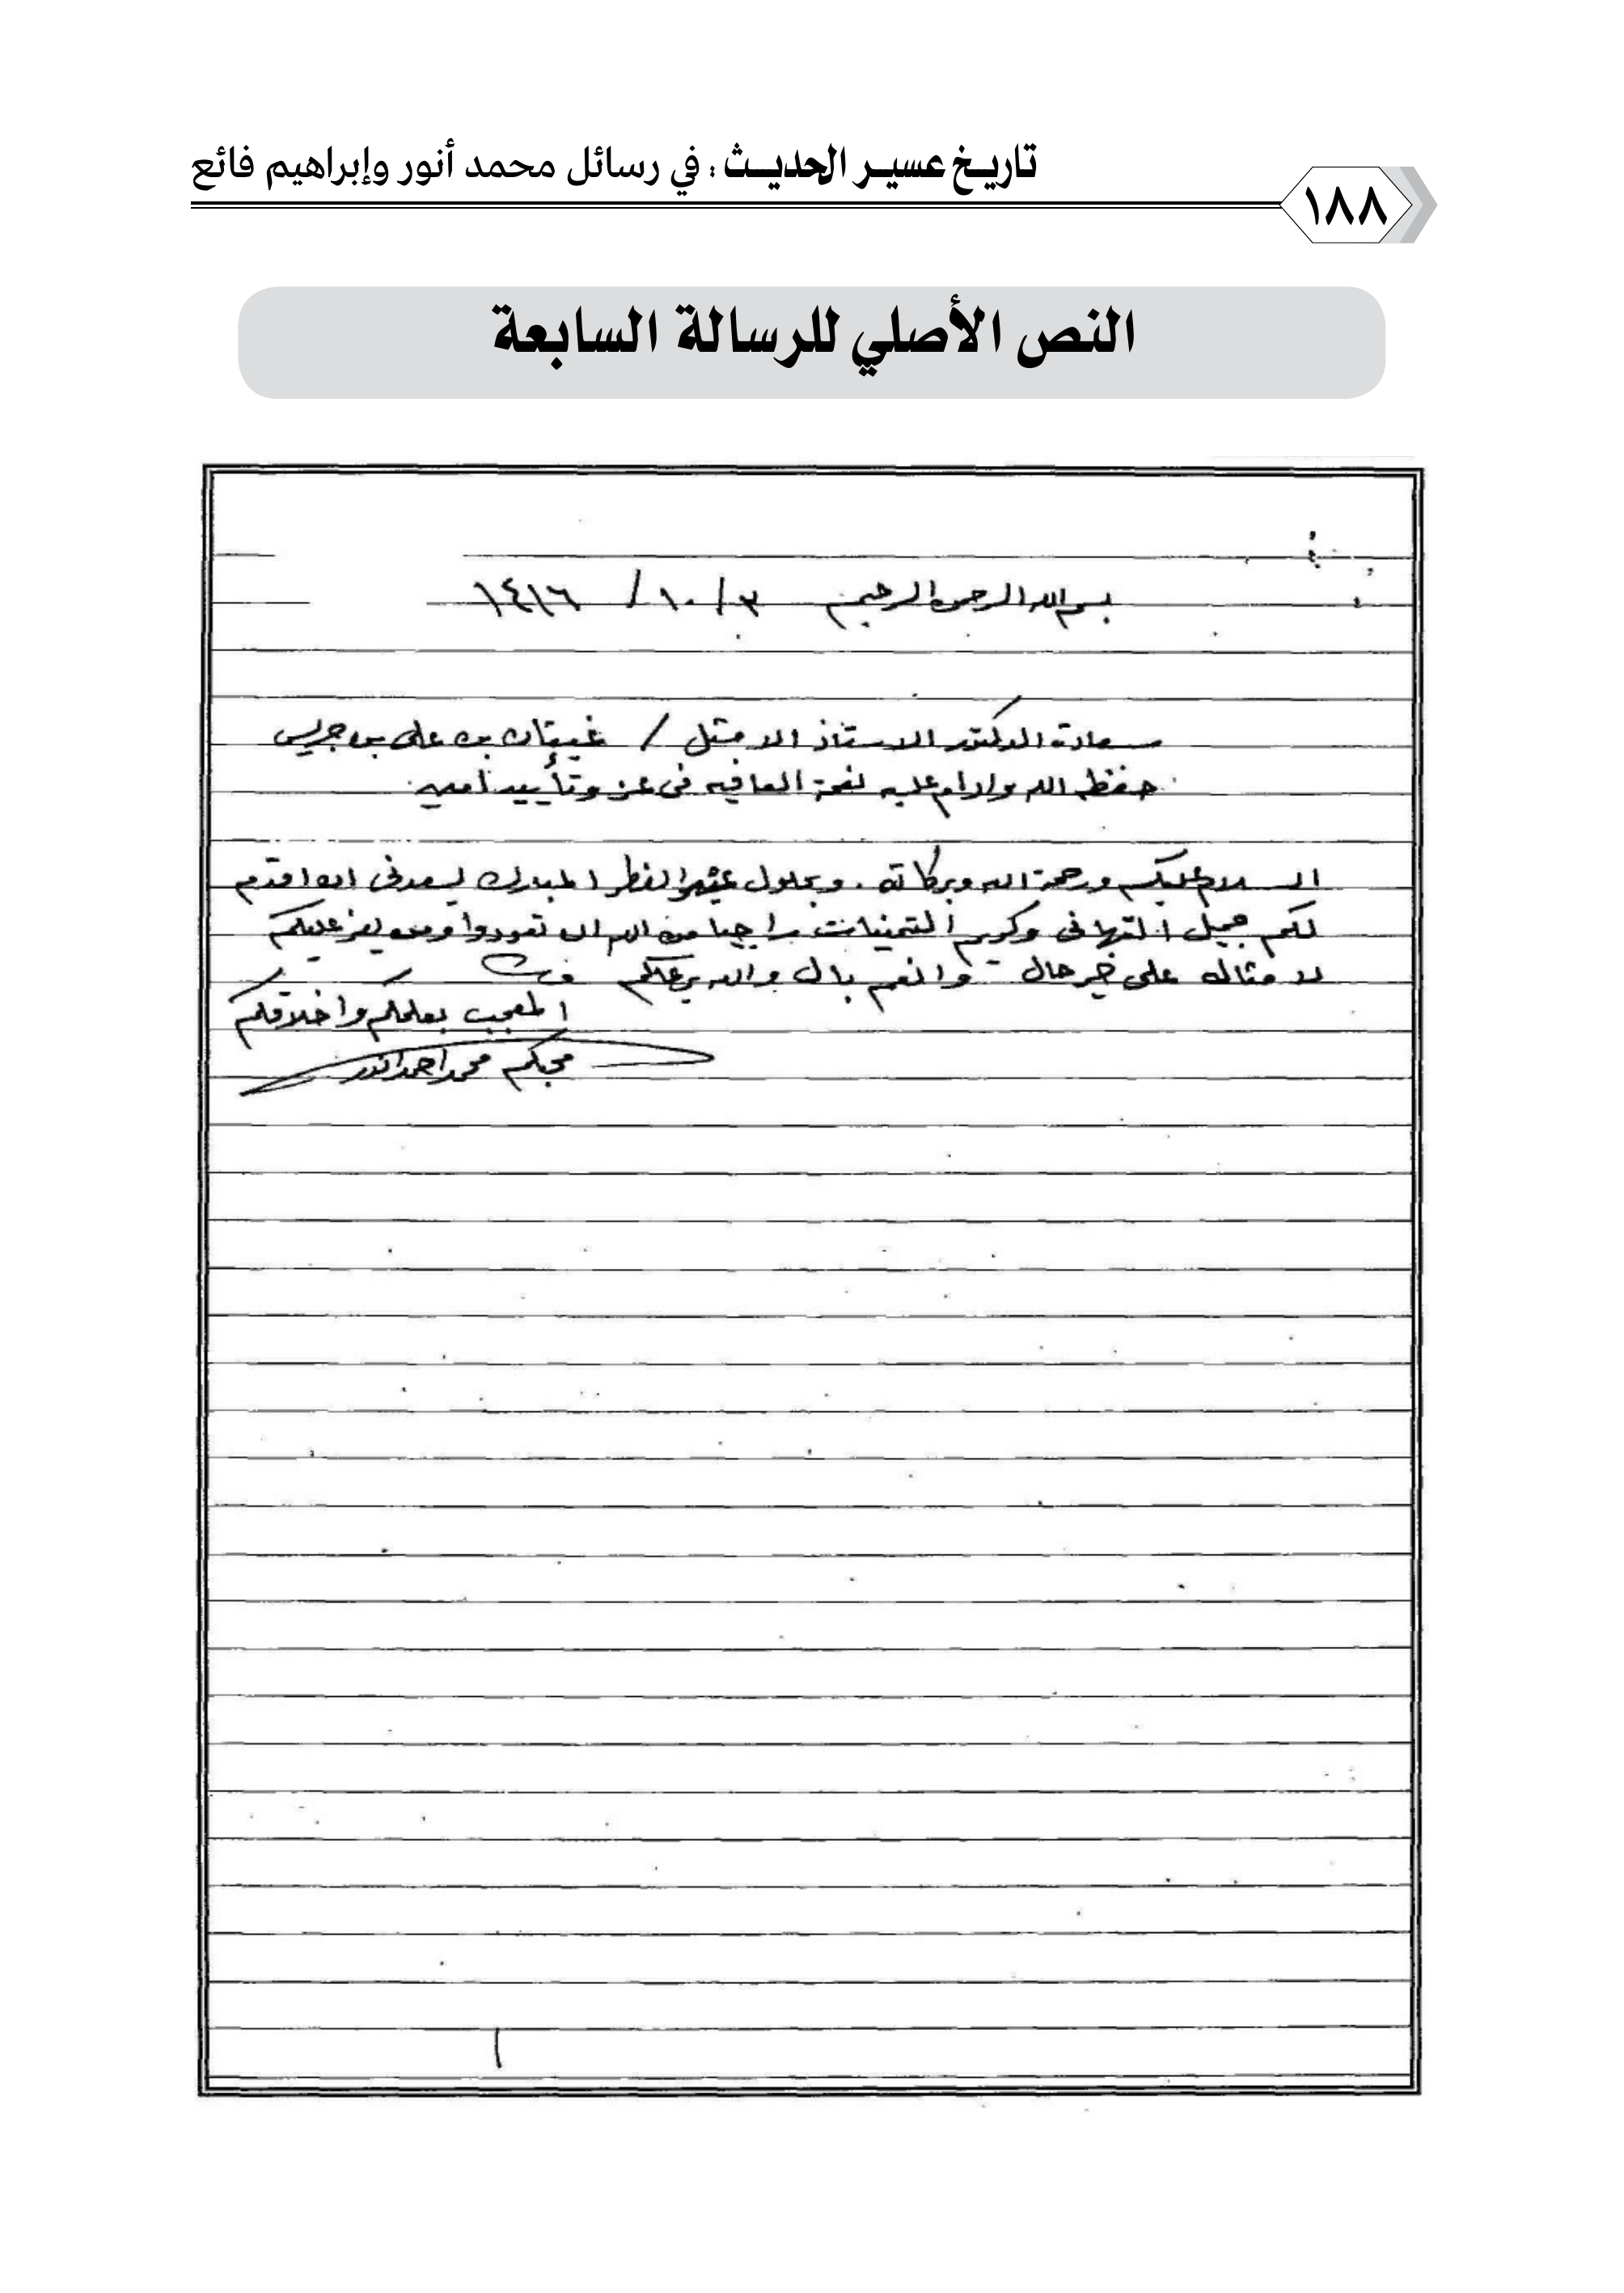 تاريخ عسير الحديث : في رسائل محمد أنور وإبراهيم فائع
١٨٨
النص الأصلي للرسالة السابعة
بسم الله الرحمن الرحيم ٣/ ١٠/ ١٤١٦
سعادة الدكتور الاستاذ الامثل / غيثان بن على بن جريس
حفظه الله وادام عليه نعمة العافيه فى عز وتأييد امين
السلام عليكم ورحمة الله وبركاته . وبحلول الفطر المبارك يسعدنى ان اقدم
لكم جميل التهانى وكريم التمنيات راجيا من الله ان تعودوا ومن يعز عليكم
لامثاله على خير حال وانعم بال والله يرعاكم
المعجب بعلمكم واخلاقكم
محبكم محمد احمد انور